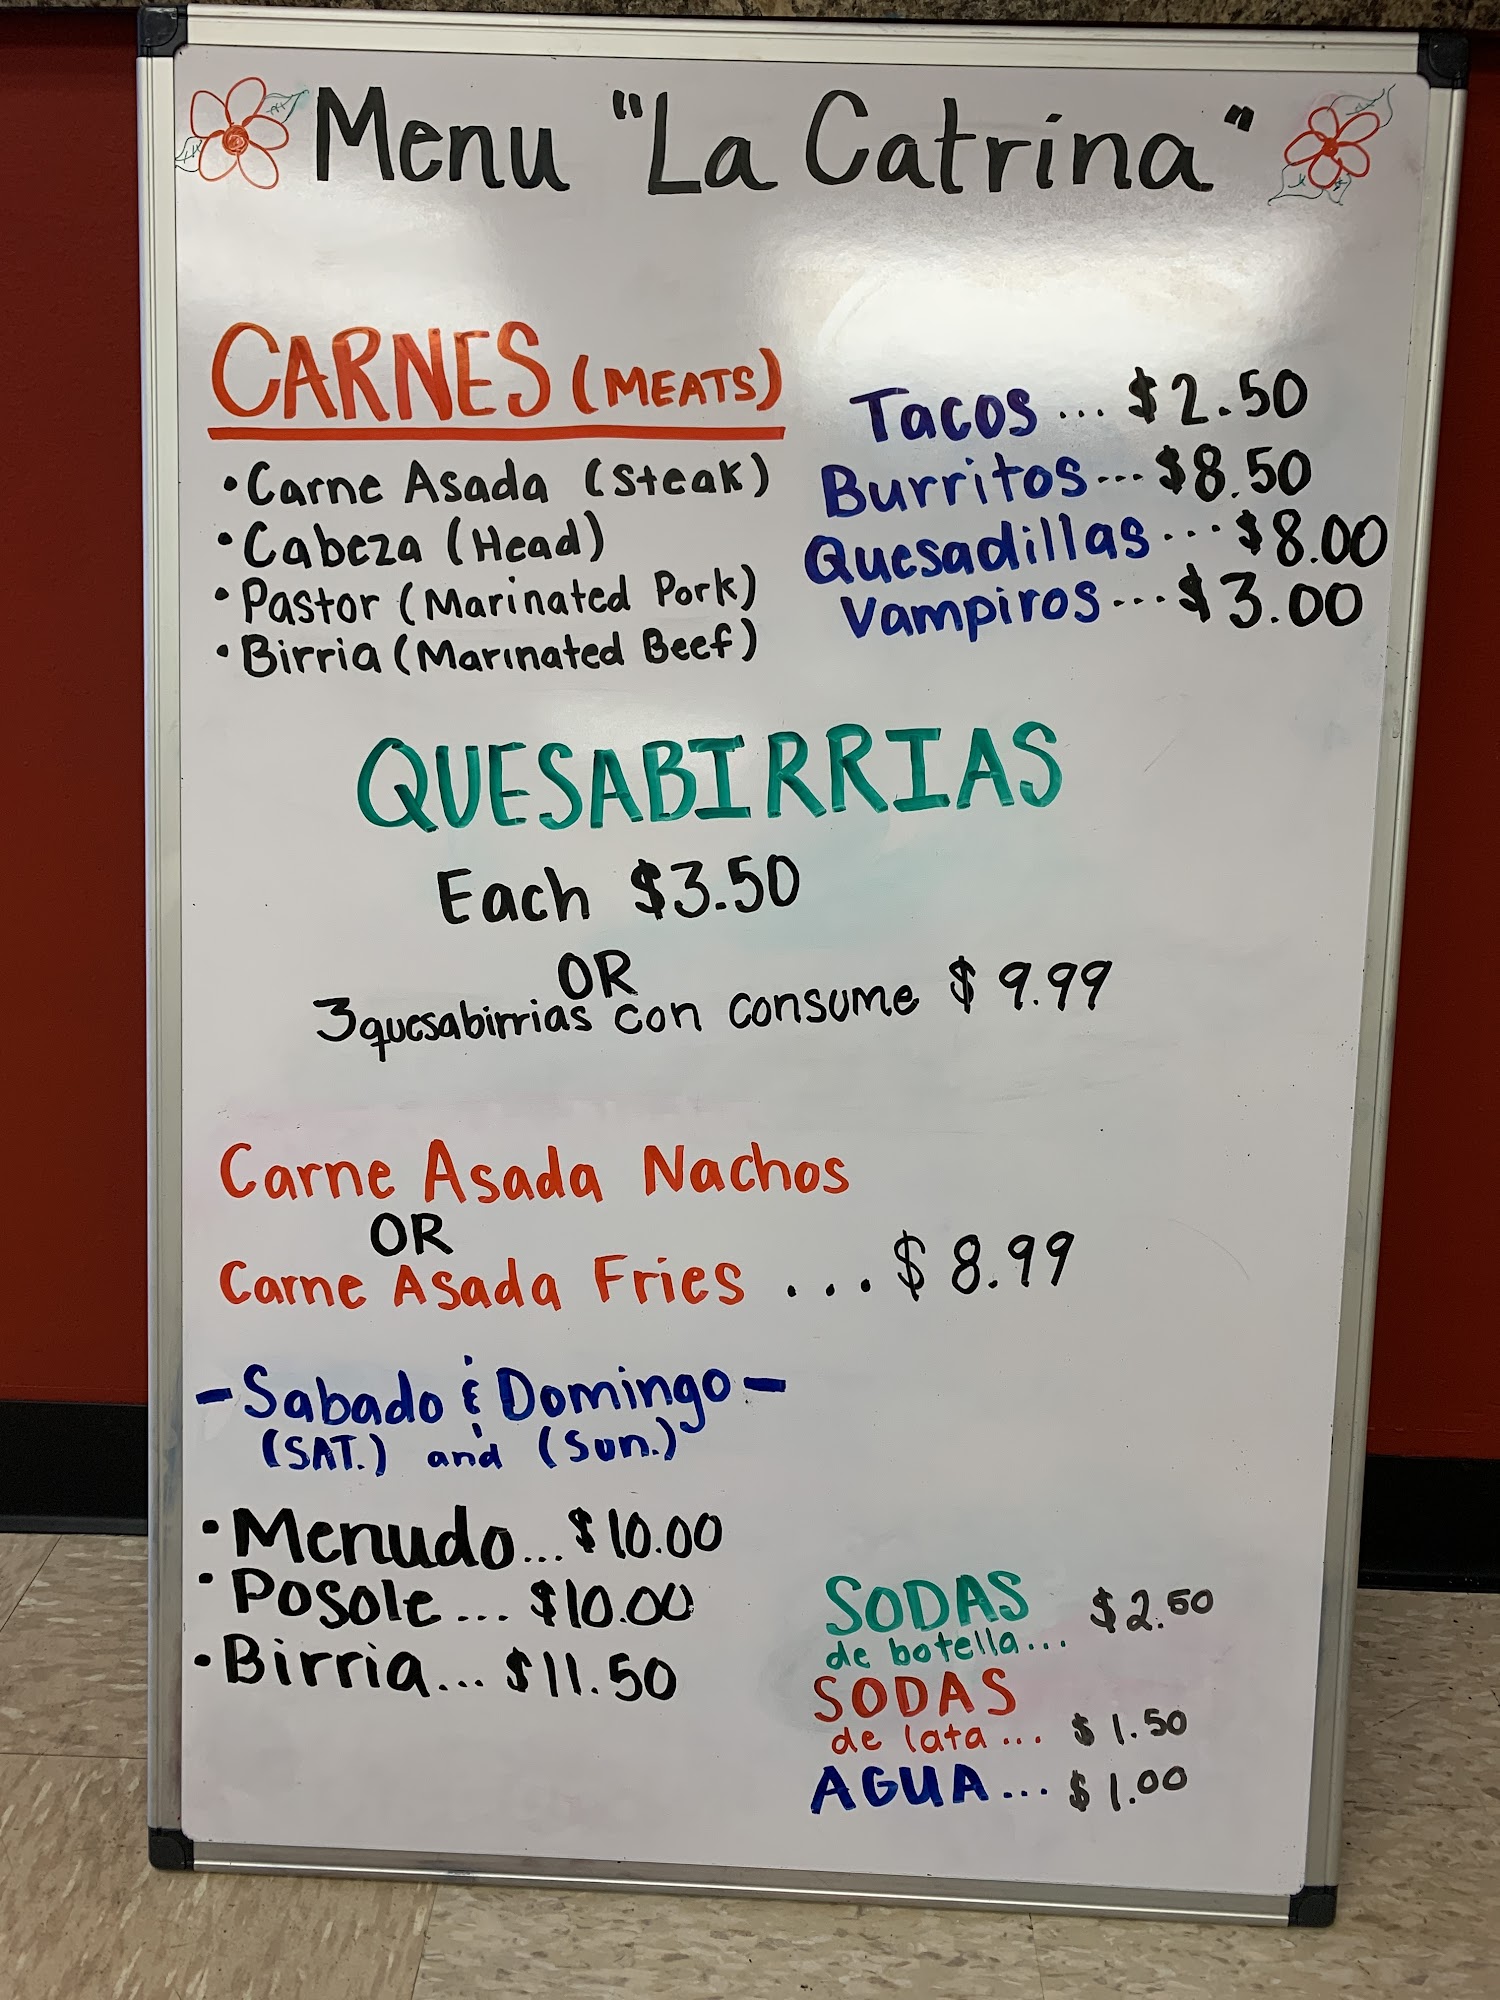 Menu "La Catrina"
CARNES (MEATS)
• Carne Asada (Steak)
• Cabeza (Head)
• Pastor (Marinated Pork)
• Birria (Marinated Beef)
Tacos ... $2.50
Burritos ... $8.50
Quesadillas ... $8.00
Vampiros ... $3.00
QUESABIRRIAS
Each $3.50
OR
3 quesabirrias con consume $9.99
Carne Asada Nachos
OR
Carne Asada Fries ... $8.99
- Sabado & Domingo -
(SAT.) and (Sun.)
• Menudo ... $10.00
• Posole ... $10.00
• Birria ... $11.50
SODAS $2.50
de botella ...
SODAS
de lata ... $1.50
AGUA ... $1.00